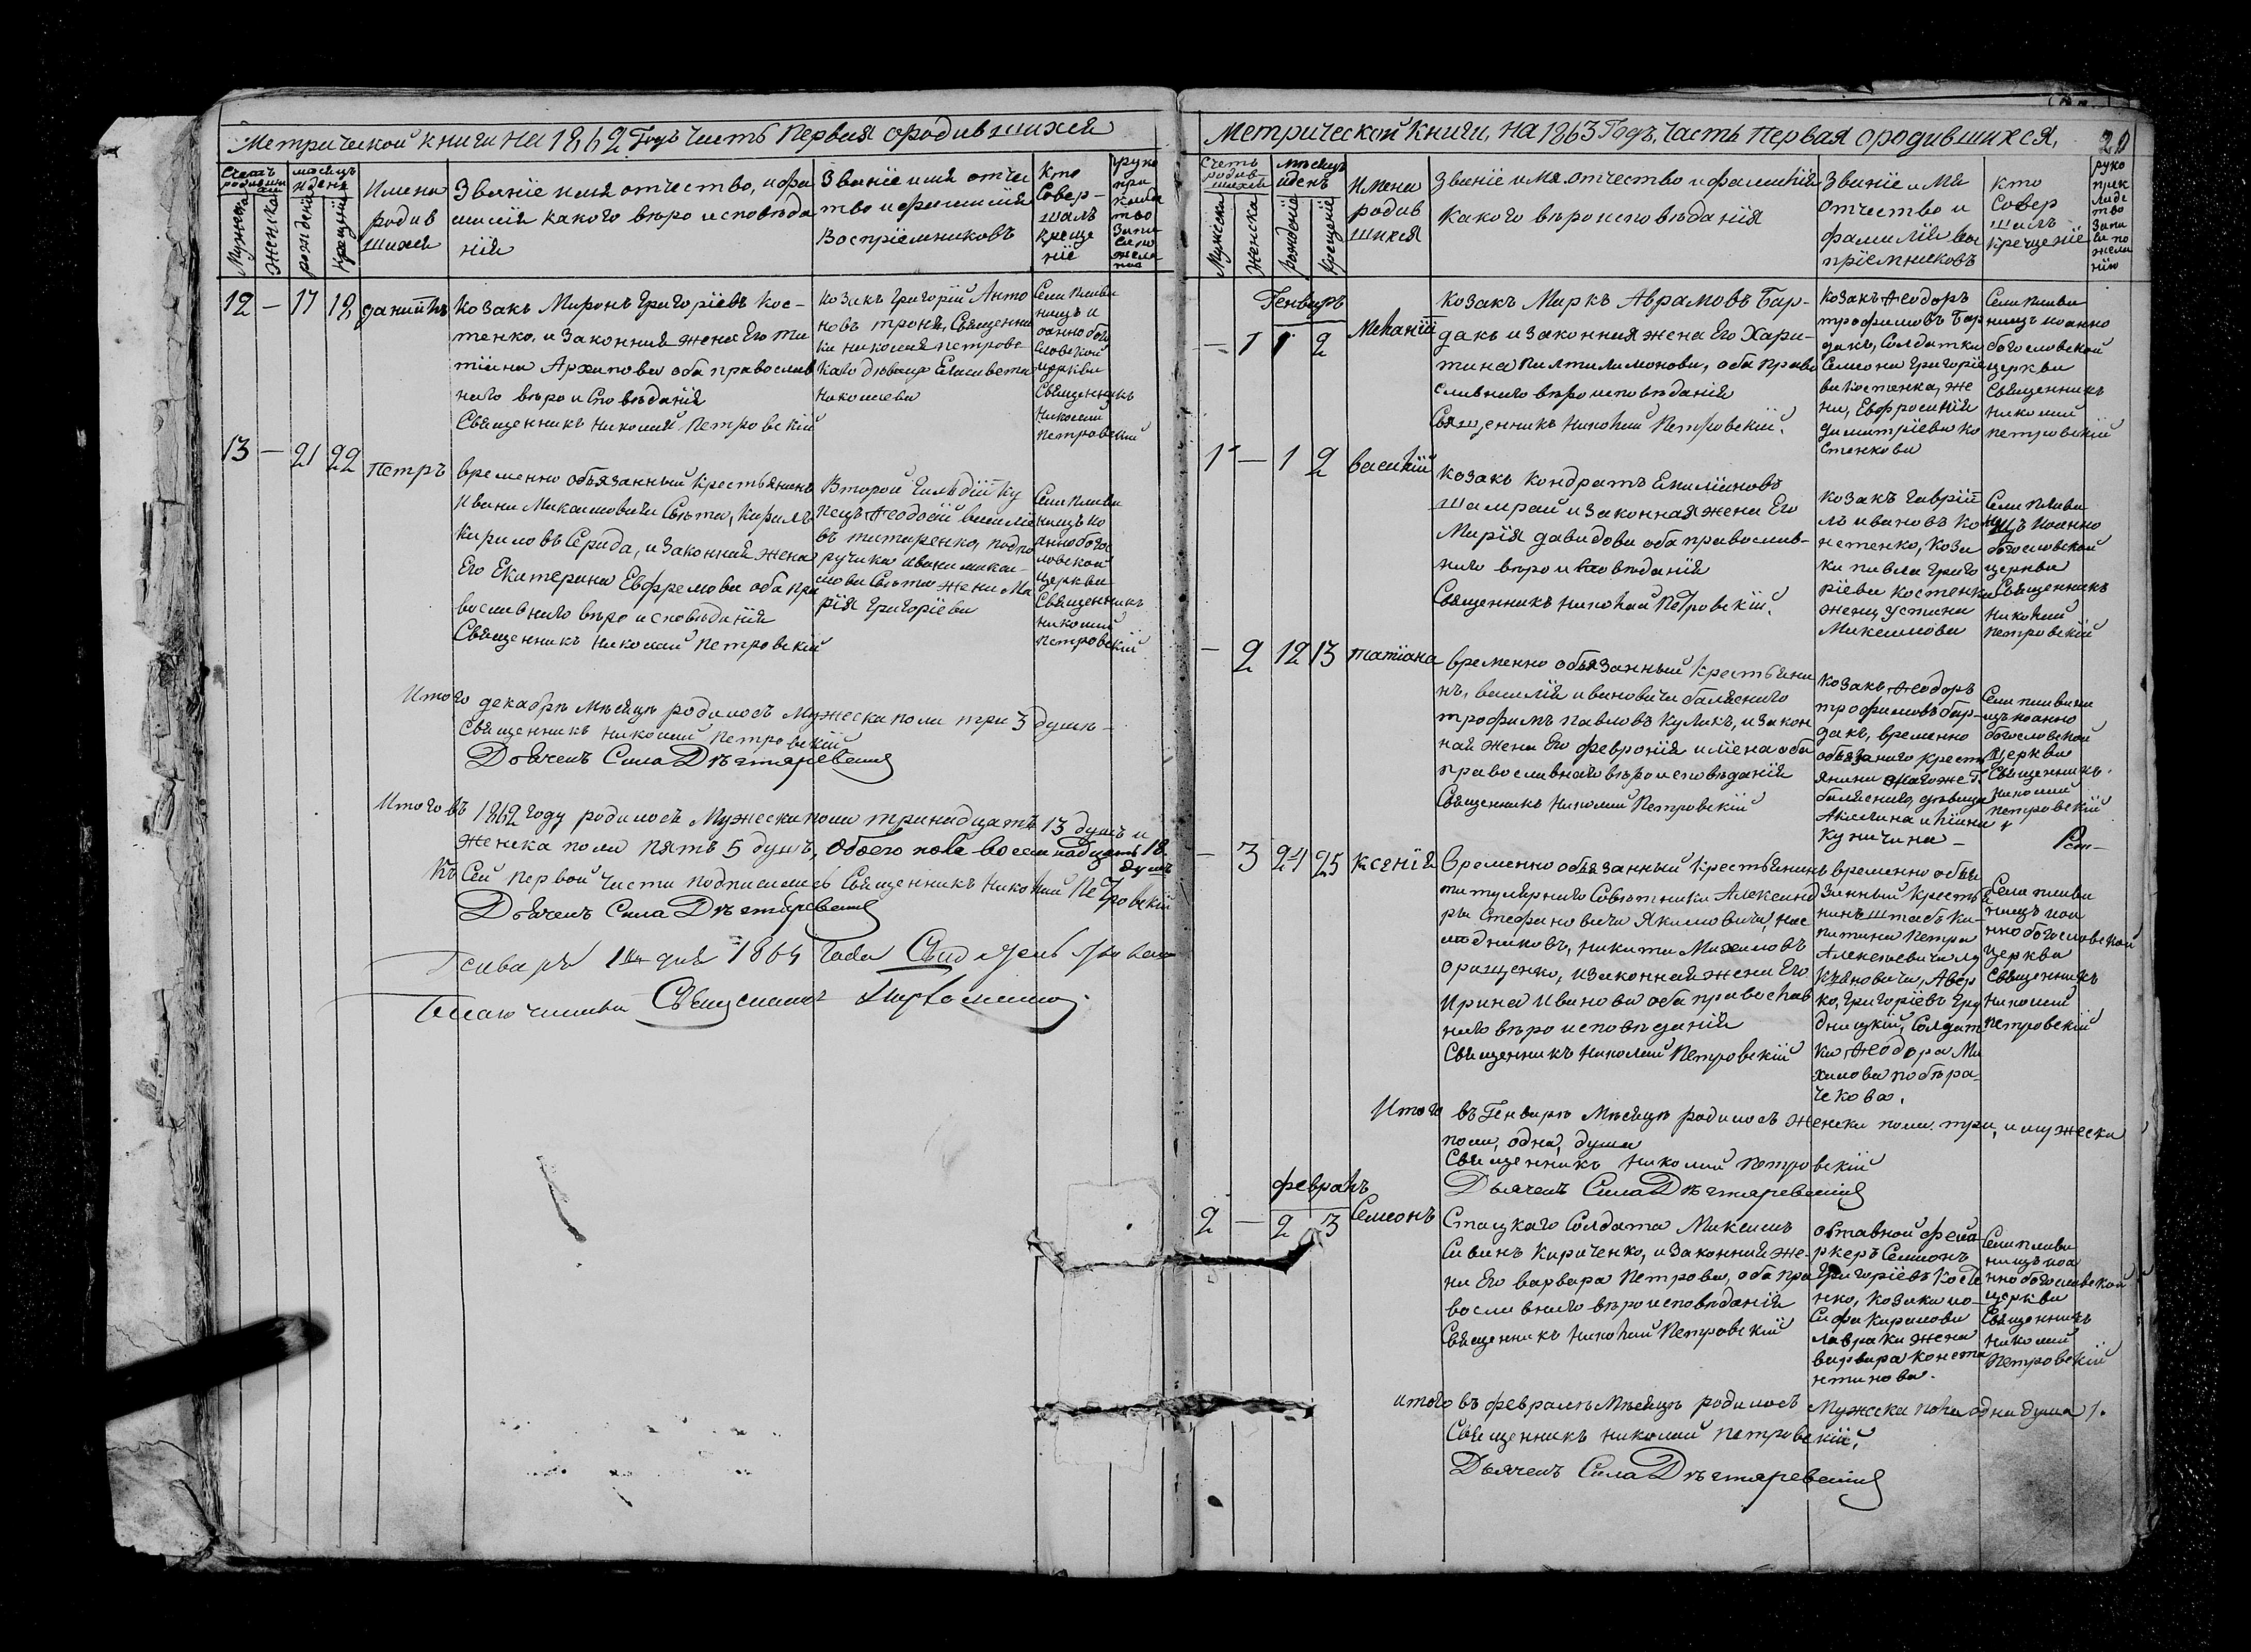 Метрической книги на 1862 Годъ Часть Первая о родившихся
Счетъ родившихся
Мужеска
Женска
мѣсяцъ и день
рожденія
Крещенія
Имена
родив
шихся
Званіе имя отчество, и фа
милія какого вѣро исповѣда
нія
Званіе имя отче
тво и фамилія
Воспріемниковъ
Кто
Совер-
шалъ
креще
ніе
руко
при
клада
тво
Запи
си по
жела
нію
12 — 17 18 Даніилъ
Козакъ Миронъ Григоріевъ Кос-
тенко, и Законная жена Его Та
тіана Архипова оба православ
наго вѣро исповѣданія
Священникъ Николай Петровскій
Козакъ Григорій Анто
новъ троня, Священни
ка Николая петровс
каго дѣвица Елисавета
Николаева
Села Пливи
ницъ и
оанно бого
словской
церкви
Священникъ
Николай
Петровскій
13 — 21 22 Петръ
временно обязанный крестьянинъ
Ивана Максимовича Сѣета, Кирилъ
Кириловъ Середа, и Законная жена
Его Екатерина Евфремова оба пра
вославнаго вѣро исповѣданія
Священникъ Николай Петровскій
Второй Гильдіи Ку
пецъ Ѳеодосій василіе
въ титаренко, подпо
ручика ивана макси
мова Сѣета жена Ма
рія Григоріева
Села Пливи
ницъ Іо
анно богос
ловской
церкви
Священникъ
николай
петровскій
Итого декабрѣ мѣсяцѣ родилось Мужеска пола три 3 души
Священникъ Николай Петровскій
Дьячекъ Сила Дѣгтяревскій
Итого въ 1862 году родилось Мужеска пола тринадцать 13 душъ и
женска пола пять 5 душъ, обоего пола восемнадцать 18
душъ
Къ Сей первой части подписались Священникъ Николай Петровскій
Дьячекъ Сила Дѣгтяревскій
Генваря дня 1864 Года
Благочинный Священникъ
Метрической Книги, на 1863 Годъ, Часть Первая о родившихся,
20
Счетъ
родив-
шихся
Мужеска
Женска
мѣсяцъ
и день
рожденіе
крещеніе
Имена
родив
шихся
Званіе имя отчество и фамилія
Какого вѣроисповѣданія
Званіе имя
Отчество и
фамилія вос
пріемниковъ
Кто
Совер
шалъ
крещеніе
руко
прик
ладс
тво
Запи
си по
жела
нію
Генварь
— 1 1 2 Меланія
Козакъ Маркъ Аврамовъ Бар-
дакъ и Законная жена Его Хари-
тина Пантилимонова, оба право
славнаго вѣроисповѣданія
Священникъ Николай Петровскій.
Козакъ Ѳеодоръ
трофимовъ Бар
дакъ, Солдатки
Семіона Григоріе
ва Костенка, же
на, Евфросинія
димитріева Ко
Стенкова
Села Пливи
ницъ иоанно
богословской
церкви
Священникъ
Николай
петровскій
1 — 1 2 Василій
Козакъ Кондратъ Емиліановъ
Шамрай и Законная жена Его
Марія давидова оба православ-
наго вѣро исповѣданія
Священникъ Николай Петровскій.
Козакъ Гавріи
лъ ивановъ Ко
нетенко, Коза
ка павла Григо
ріева костенка
жена, Устина
Максимова
Села Пливи
ницъ Иоанно
богословской
церкви
Священникъ
Николай
петровскій
— 2 12 13 татіана
временно обязанный крестьяни
нъ, василія ивановича баляснаго
трофимъ павловъ Куликъ, и закон
ная жена Его феврония оба
православнаго вѣроисповѣданія
Священникъ Николай Петровскій
Козакъ Ѳеодоръ
трофимовъ бар-
дакъ, временно
обязаного крест
янина онагоже Г.
баляснаго, дѣвица
Акилина
Куличина —
Села пливини
цъ иоанно
богословской
Церкви
Священникъ
Николай
петровскій
— 3 24 25 Ксенія
Временно обязанный Крестьянинъ
титулярнаго Совѣтника Александ
ры Стефановича Якимовича, нас
лѣдниковъ, никита Михаиловъ
Орищенко, и законная жена Его
Ирина Иванова оба православ
наго вѣро исповѣданія
Священникъ Николай Петровскій
временно обя
Занный крестья
нинъ штабъ Ка-
питана Петра
Алексѣевича Лу
кьяновича, Авер
ко, Григоріевъ Гру
дницкій, Солдат
ка Ѳеодора Ми
хаилова побѣра-
чекова.
Села пливи
ницъ иоа
нно богословской
церкви
Священникъ
Николай
петровскій
Итого въ Генварѣ Мѣсяцѣ родилось Женска пола три, и мужеска
пола, одна, душа
Священникъ Николай Петровскій
Дьячекъ Сила Дѣгтяревскій
февраль
2 — 2 3 Семіонъ
Стацкаго Солдата Максимъ
Савинъ Кириченко, и Законная же-
на Его варвара Петрова, оба пра
вославнаго вѣроисповѣданія
Священникъ Николай Петровскій
оставной фейе
ркеръ Семіонъ
Григоріевъ Косте
нко, Козака ио-
Сифа Карпова
лаврака жена
варвара конста
нтинова.
Села пливи
ницъ иоа
нно богословской
церкви
Священникъ
Николай
Петровскій
итого въ февралѣ Мѣсяцѣ родилось Мужеска пола одна душа 1.
Священникъ николай петровскій.
Дьячекъ Сила Дѣгтяревскій